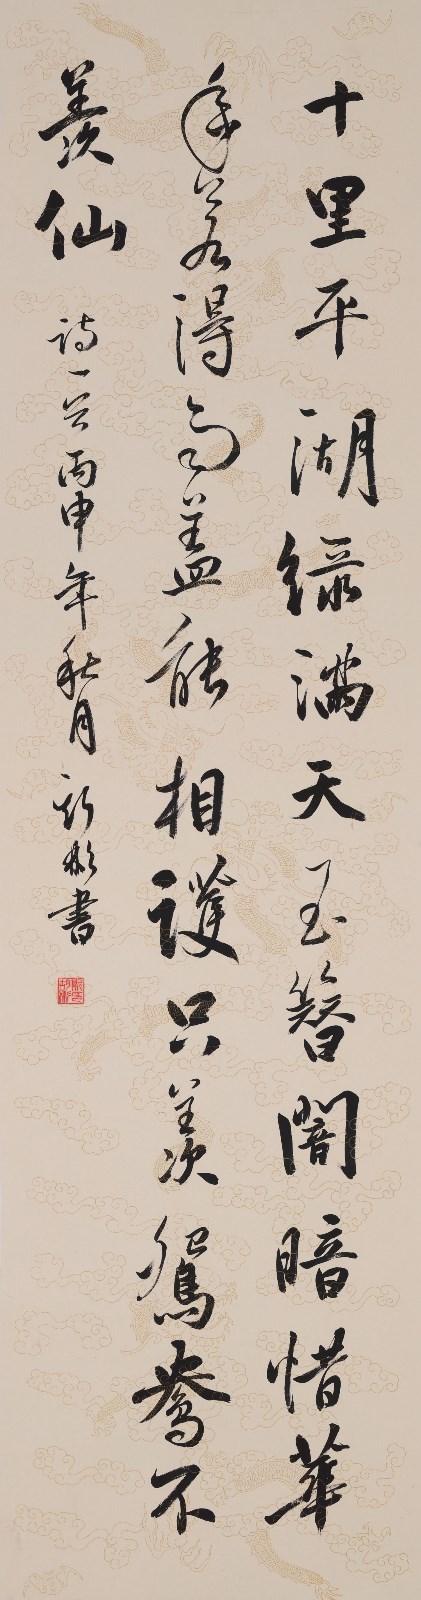 十里平湖綠滿天玉簪闇暗惜華
年若得雨蓋能相護只羨鴛鴦不
羨仙 詩一首丙申年秋月 書